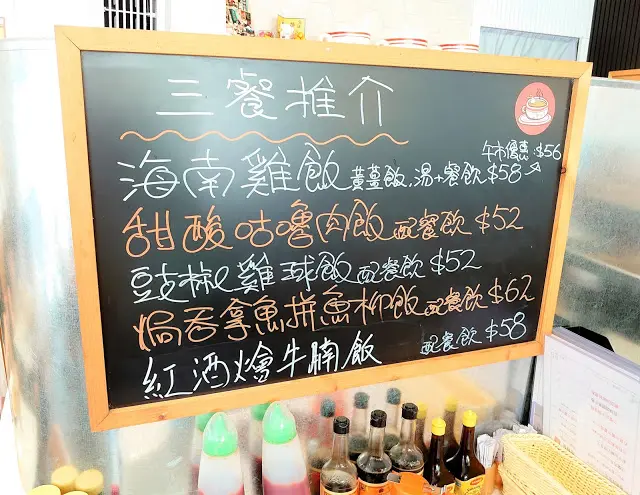 三餐推介
午市優惠:$56
海南雞飯 黃薑飯,湯+餐飲 $58
甜酸咕嚕肉飯 配餐飲 $52
豉椒雞球飯 配餐飲 $52
焗吞拿魚拼魚柳飯 配餐飲 $62
紅酒燴牛腩飯 配餐飲 $58